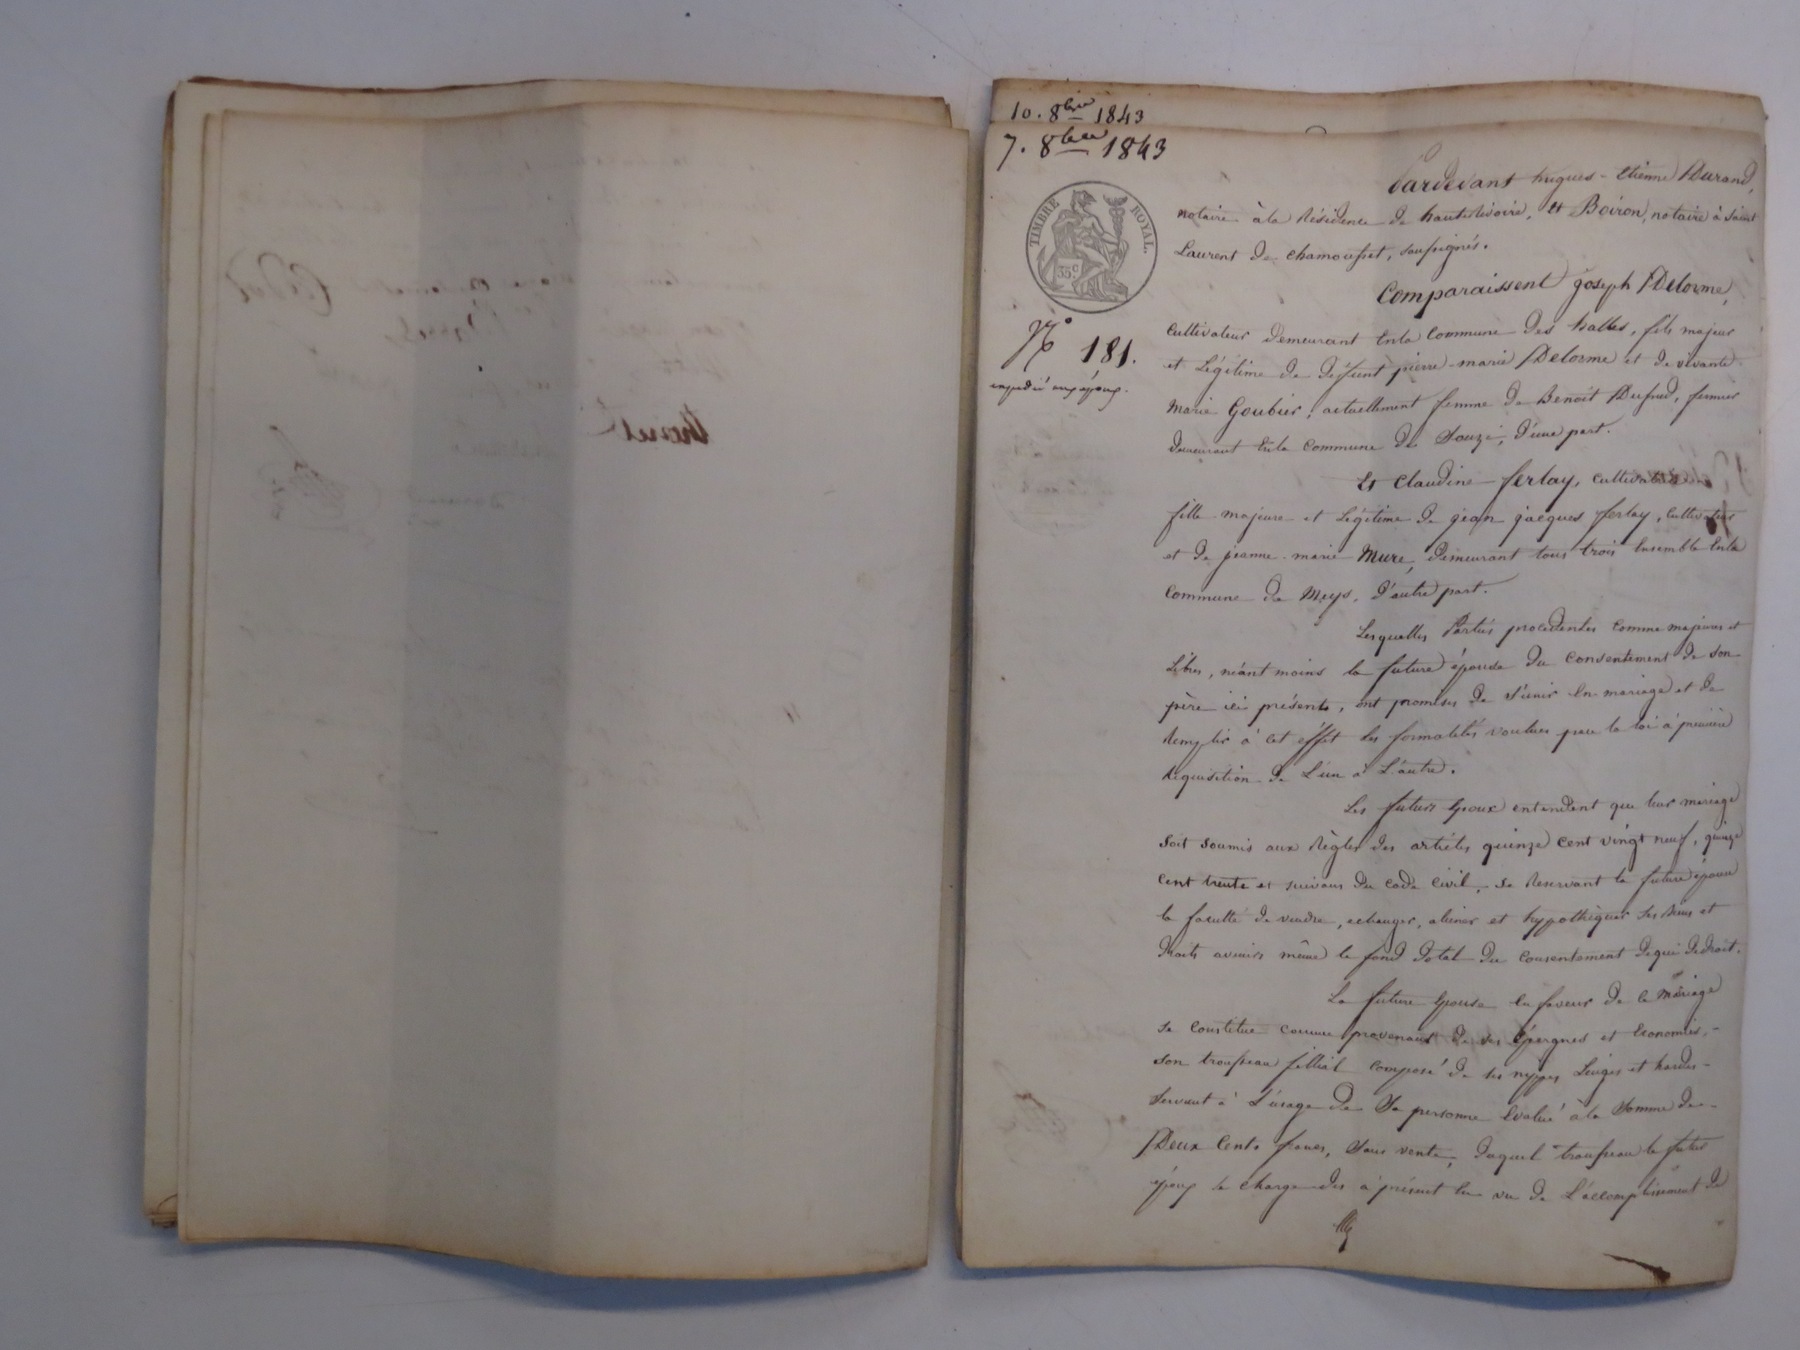 10. 8bre 1843
7. 8bre 1843
TIMBRE ROYAL.
35 c.
N° 181.
expédié aux époux.
Pardevant hugues-Etienne Durand,
notaire à la Résidence de hauterivoire, et Boiron, notaire à Saint
Laurent de chamousset, soussignés.
Comparaissent joseph Delorme,
cultivateur demeurant Enla Commune des halles, fils majeur
et Légitime de défunt pierre-marie Delorme et de vivante
marie Goubier, actuellement femme de Benoît Dufud, fermier
demeurant Enla Commune de Souzi, d'une part.
Et Claudine ferlay, cultivatrice
fille majeure et Légitime de jean jacques ferlay, cultivateur
et de jeanne-marie Mure, demeurant tous trois Ensemble Enla
commune de Meys, d'autre part.
Lesquelles Parties procédentes comme majeures et
Libres, néant moins la future épouse du consentement de son
père ici présente, ont promises de S'unir En mariage et de
Remplir à cet éffet les formalités voulues par la loi à première
Réquisition de L'un à L'autre.
Les futurs Epoux entendent que leur mariage
soit soumis aux Règles des articles quinze cent vingt neuf, quinze
cent trente et suivans du code civil, se Reservant la future épouse
la faculté de vendre, echanger, aliener et hypothèquer ses biens et
droits avenirs même le fond dotal du consentement dequi dedroit.
La future Epouse En faveur de ce mariage
se constitue comme provenant de ses épargnes et Economies,
son trousseau fillial composé de ses nippes Linges et hardes
servant à L'usage de Sa personne Evalué à la Somme de
Deux Cents francs, Sans vente, duquel trousseau le futur
époux se charge dès à présent En vue de L'accomplissement de